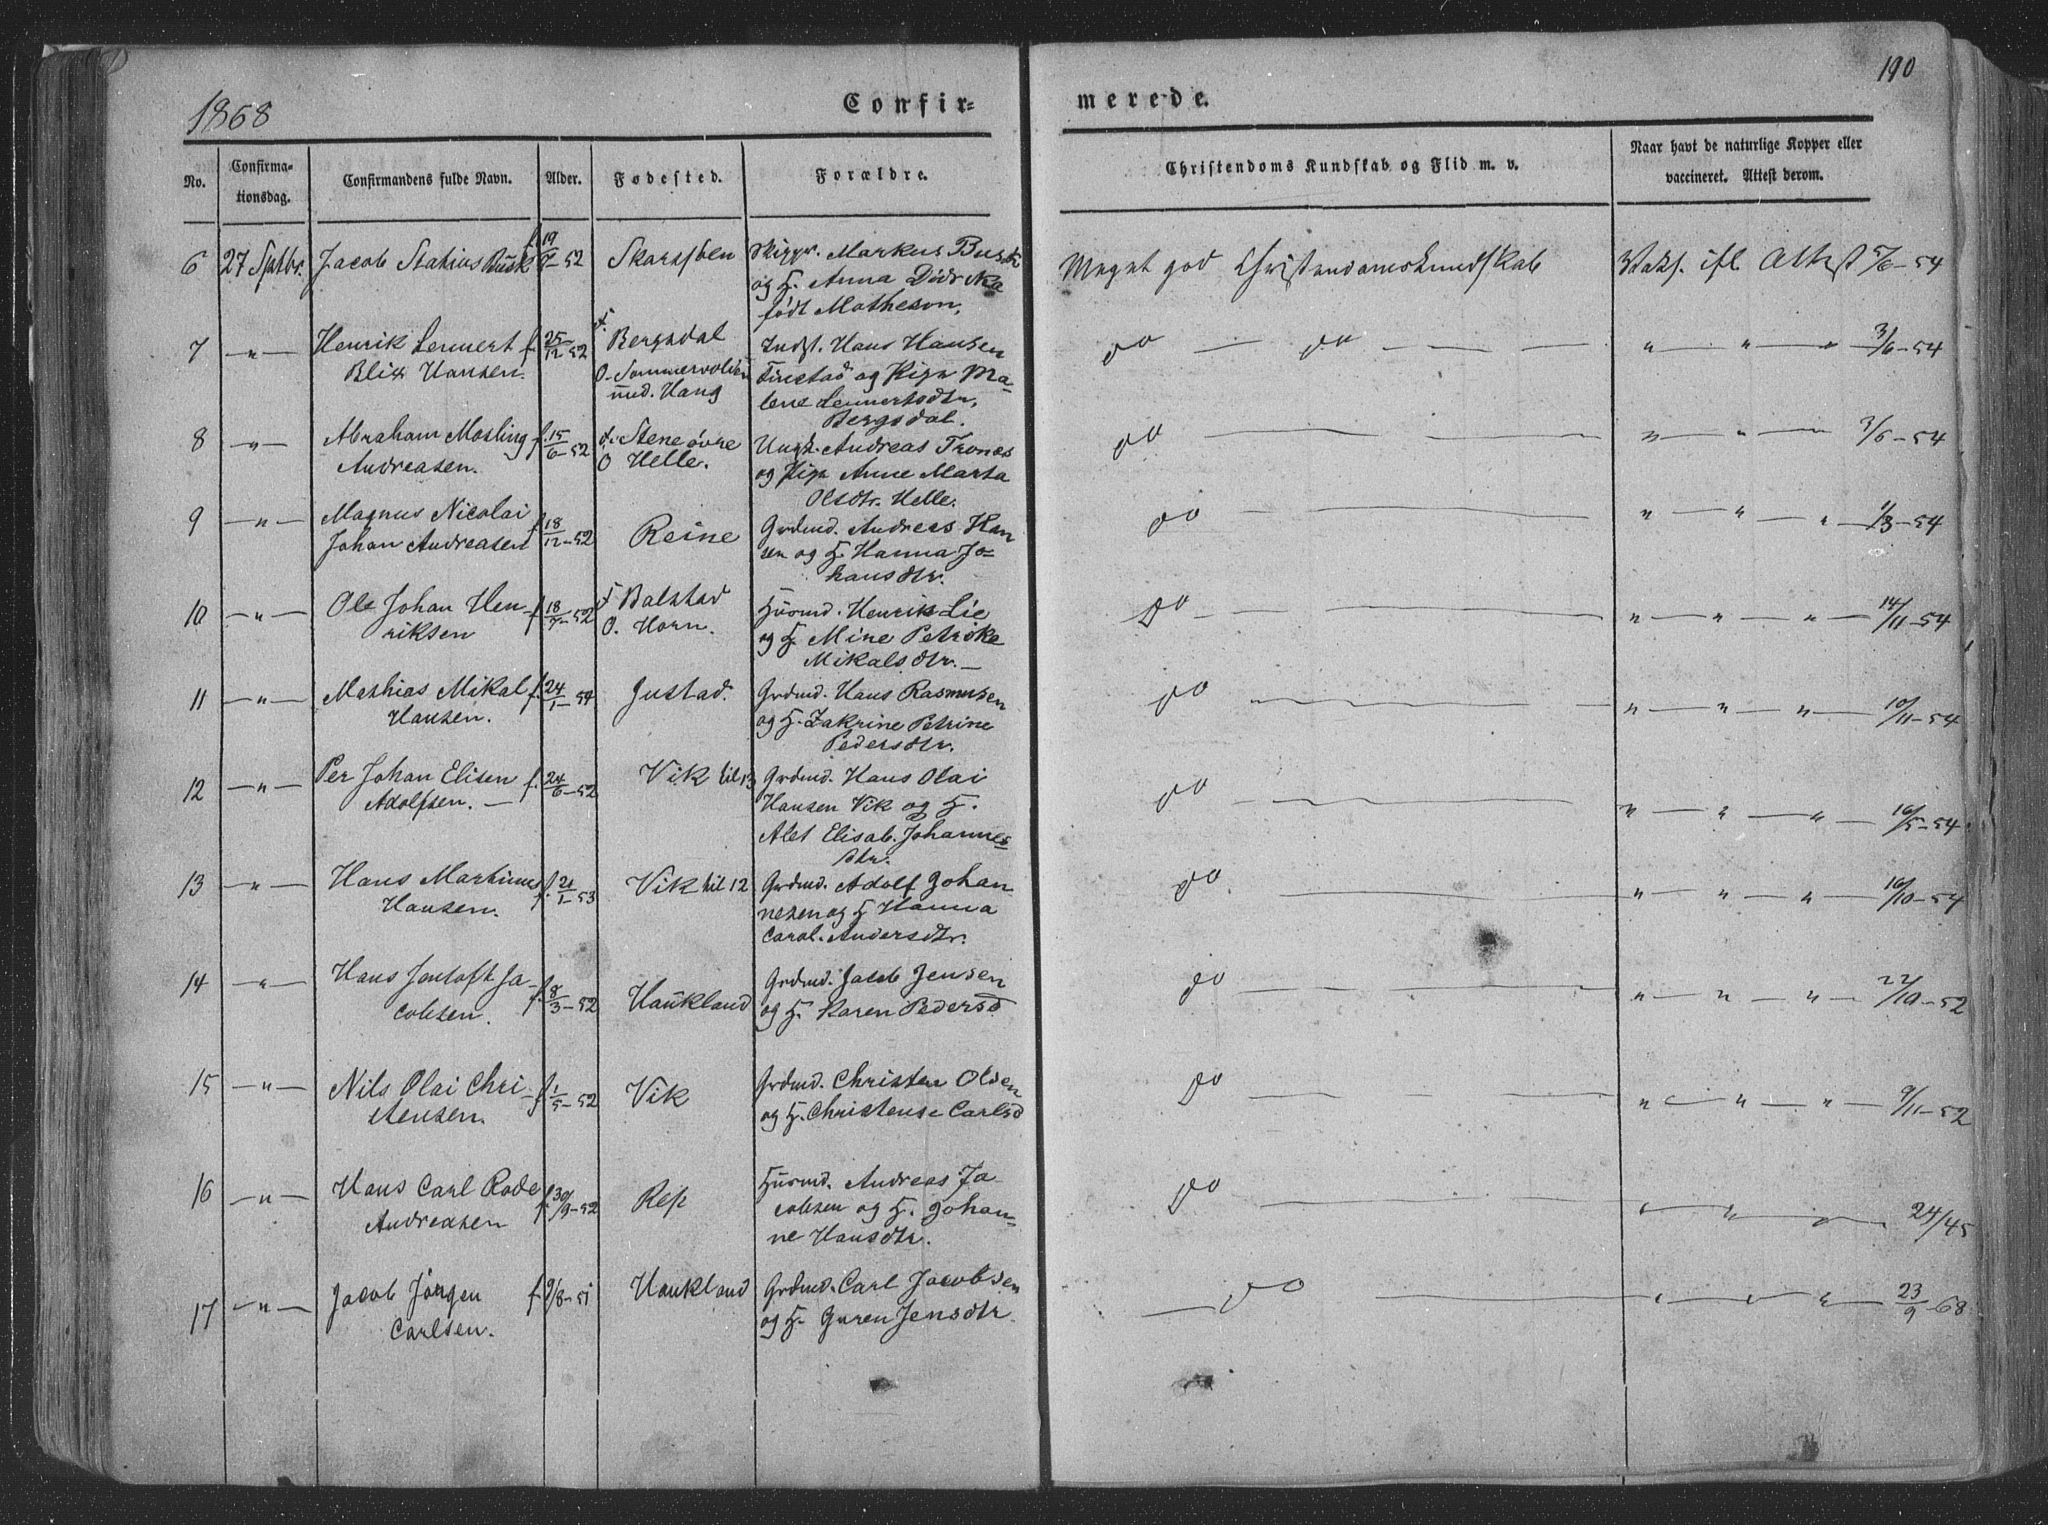 190
1868
Confir=
merede.
No.
Confirma-
tionsdag.
Confirmandens fulde Navn.
Alder.
Fødested.
Forældre.
Christendoms Kundskab og Flid m. v.
Naar havt de naturlige Kopper eller
vaccineret. Attest derom.
6 27 Sptbr. Jacob Statius Busk f. 19/7-52 Skarsften Skippr. Markus Busk Meget god Christendomskundskab Vaks. ifl Attest 5/6-54
og H. Anna Didrika
født Matheson,
7 -"- Henrik Lennert f. 25/12-52 f. Bergsdal Indst. Hans Hansen do — do — — — " " " 3/6-54
Blix Hansen. O. Sommervolden Finstad og Pige Ma-
und. Haug lene Lennertsdtr,
Bergsdal.
8 -"- Abraham Mosling f. 15/6-52 f. Stene øvre Ungk. Andreas Tronæs do " " 3/6-54
Andreasen. O Helle. og Pige Anne Marta
Olsdtr. Helle.
9 -"- Magnus Nicolai f. 18/12-52 Reine Grdmd. Andreas Han do " " " 1/3-54
Johan Andreasen sen og H. Hanna Jo-
hansdtr.
10 -"- Ole Johan Hen- f. 18/7-52 f Balstad Husmd. Henrik Lie do " " " 14/11-54
riksen O. Horn. og H. Mine Petrike
Mikalsdtr.—
11 -"- Mathias Mikal f. 24/1-54 Justad. Grdmd. Hans Rasmusen do " " " 10/11-54
Hansen. og H. Zakrine Petrine
Pedersdtr.
12 -"- Per Johan Elisen f. 24/6-52 Vik til 13 Grdmd. Hans Olai do " " " 16/5-54
Adolfsen. — Hansen Vik og H.
Alet Elisab. Johannes-
dtr.
13 -"- Hans Martinus f. 21/1-53 Vik til 12 Grdmd. Adolf Johan do " " " 16/10-54
Hansen. nesen og H Hanna
Carol. Andersdtr.
14 -"- Hans Jentoft Ja- f. 8/3-52 Haukland Grdmd. Jacob Jensen do " " " 22/10-52
cobsen. og H. Karen Pedersd
15 -"- Nils Olai Chri- f. 1/5-52 Vik Grdmd. Christen Olsen do " " " 9/11-52
stensen. og H. Christense Carlsd
16 -"- Hans Carl Rode f. 30/9-52 Rep Husmd. Andreas Ja- do " " " 24/45
Andreasen cobsen og H. Johan-
ne Hansdtr.
17 -"- Jacob Jörgen f. 9/8-51 Haukland Grdmd. Carl Jacobsen do " " " 23/9-68
Carlsen. og H. Guren Jensdtr.